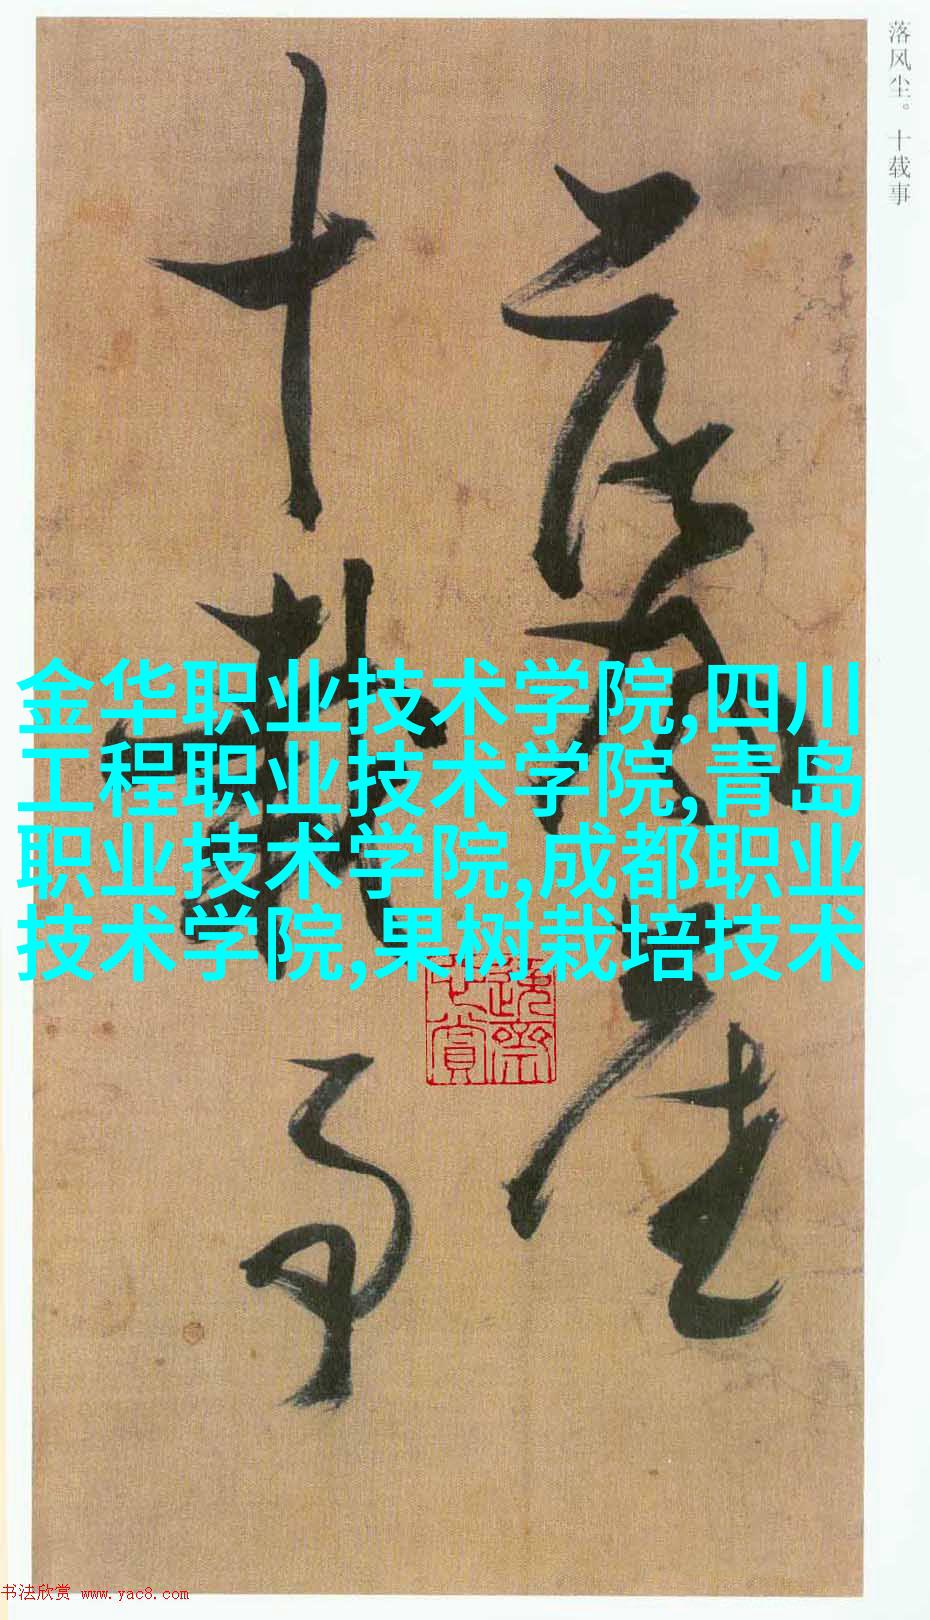 落风尘。十载事
落风尘
十载事
金华职业技术学院,四川
工程职业技术学院,青岛
职业技术学院,成都职业
技术学院,果树栽培技术
书法欣赏 www.yac8.com